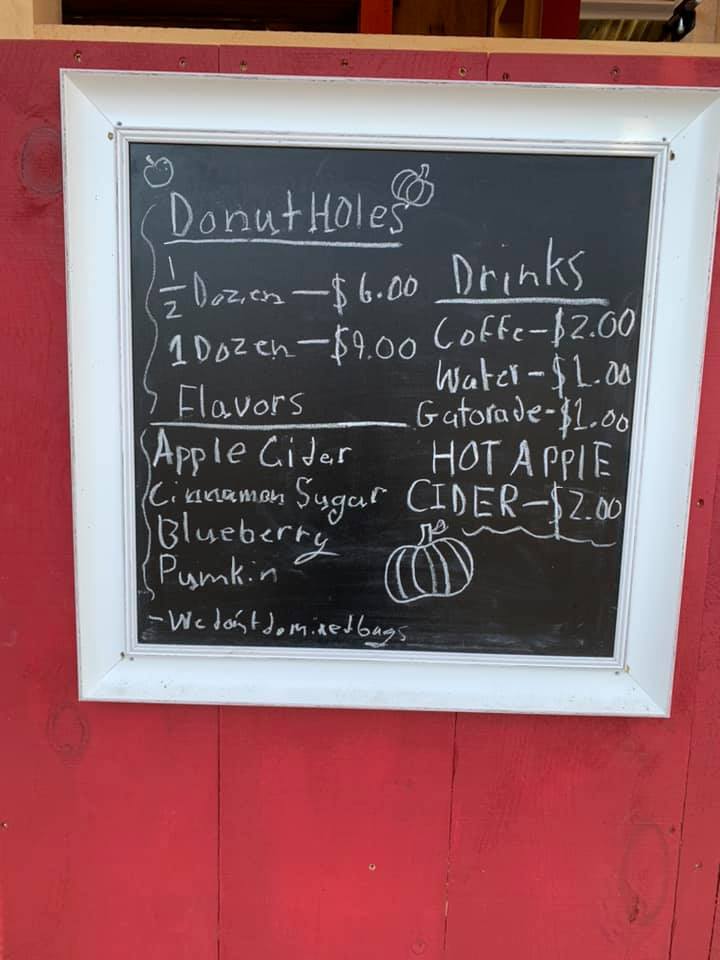 Donut Holes
1/2 Dozen - $6.00
1 Dozen - $9.00
Flavors
Apple Cider
Cinnamon Sugar
Blueberry
Pumkin
- We don't do mixed bags
Drinks
Coffe - $2.00
Water - $1.00
Gatorade - $1.00
HOT APPlE
CIDER - $2.00